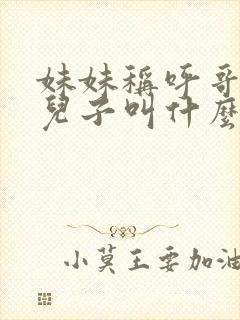 妹妹稱呼哥
兒子叫什麼
小莫王要加油